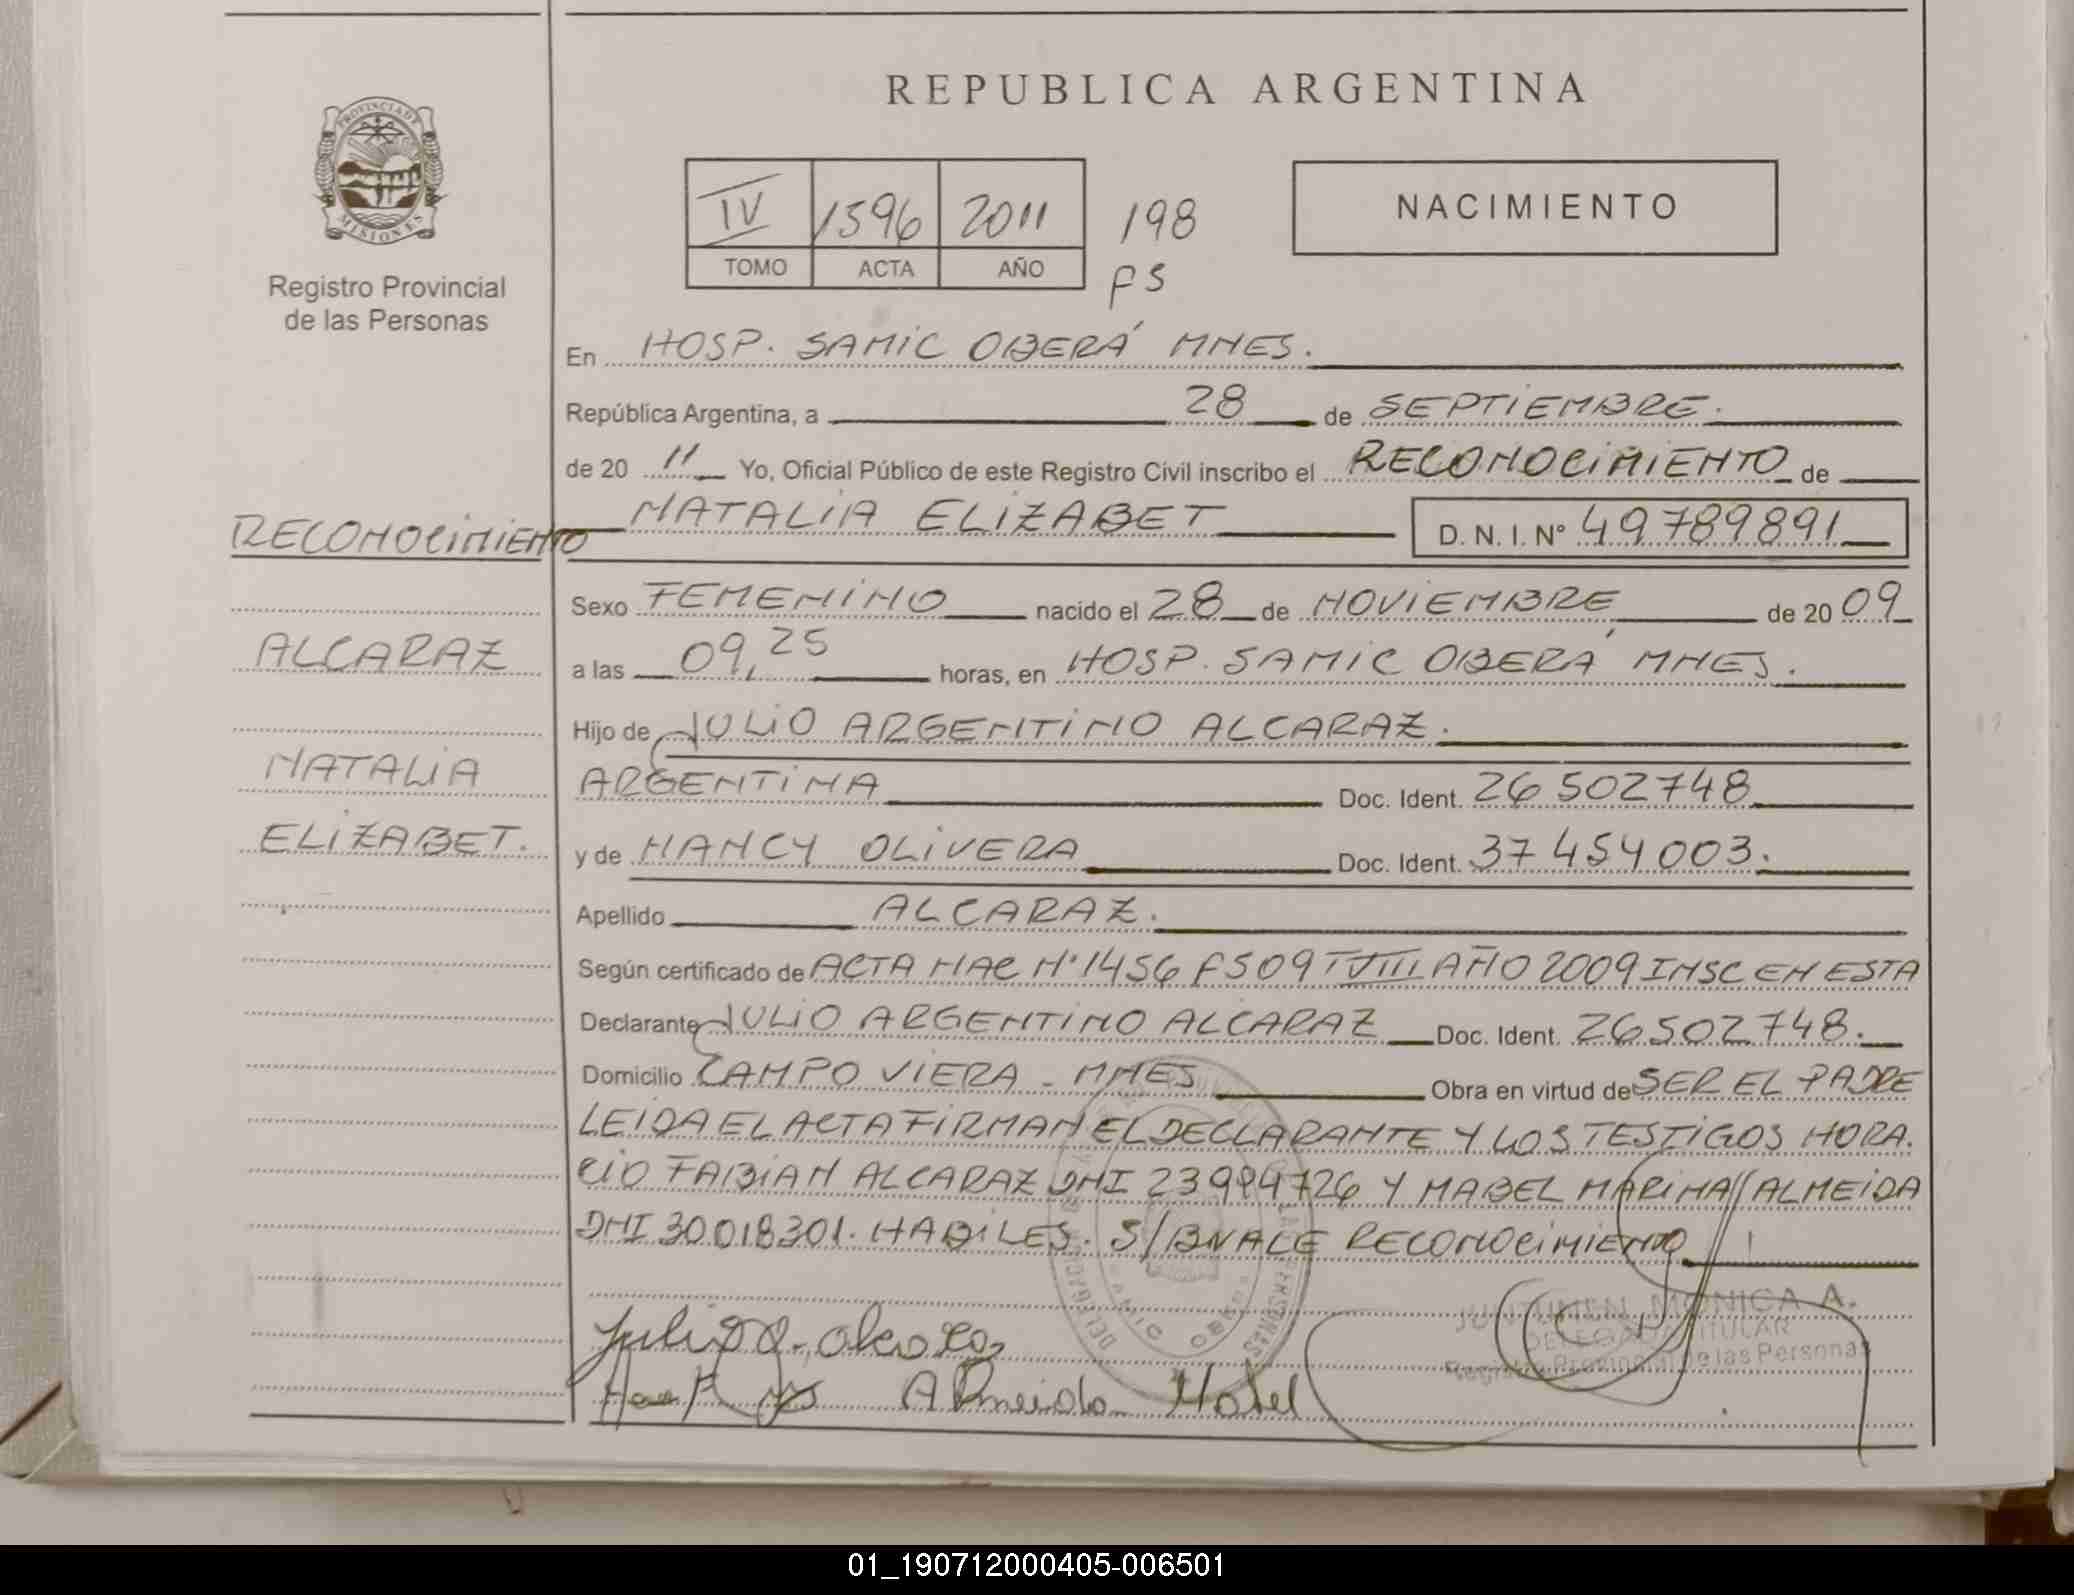 REPUBLICA ARGENTINA
PROVINCIA DE
MISIONES
Registro Provincial
de las Personas
IV 1596 2011 198
TOMO ACTA AÑO FS
NACIMIENTO
En HOSP. SAMIC OBERÁ MNES.
República Argentina, a 28 de SEPTIEMBRE.
de 20 11 Yo, Oficial Público de este Registro Civil inscribo el RECONOCIMIENTO de
NATALIA ELIZABET D. N. I. Nº 49789891
RECONOCIMIENTO
Sexo FEMENINO nacido el 28 de NOVIEMBRE de 20 09
ALCARAZ
a las 09,25 horas, en HOSP. SAMIC OBERÁ MNES.
Hijo de JULIO ARGENTINO ALCARAZ.
NATALIA
ARGENTINA Doc. Ident. 26502748
ELIZABET.
y de NANCY OLIVERA Doc. Ident. 37454003.
Apellido ALCARAZ.
Según certificado de ACTA NAC Nº 1456 FS 09 T VIII AÑO 2009 INSC EN ESTA
Declarante JULIO ARGENTINO ALCARAZ Doc. Ident. 26502748.
Domicilio CAMPO VIERA - MNES Obra en virtud de SER EL PADRE
LEIDA EL ACTA FIRMAN EL DECLARANTE Y LOS TESTIGOS HORA.
CIO FABIAN ALCARAZ DNI 23994726 Y MABEL MARINA ALMEIDA
DNI 30018301. HABILES. S/B VALE RECONOCIMIENTO
Julio A. alcaraz
Almeida Mabel
JUNTUNEN MONICA A.
DELEGADA TITULAR
Registro Provincial de las Personas
01_190712000405-006501